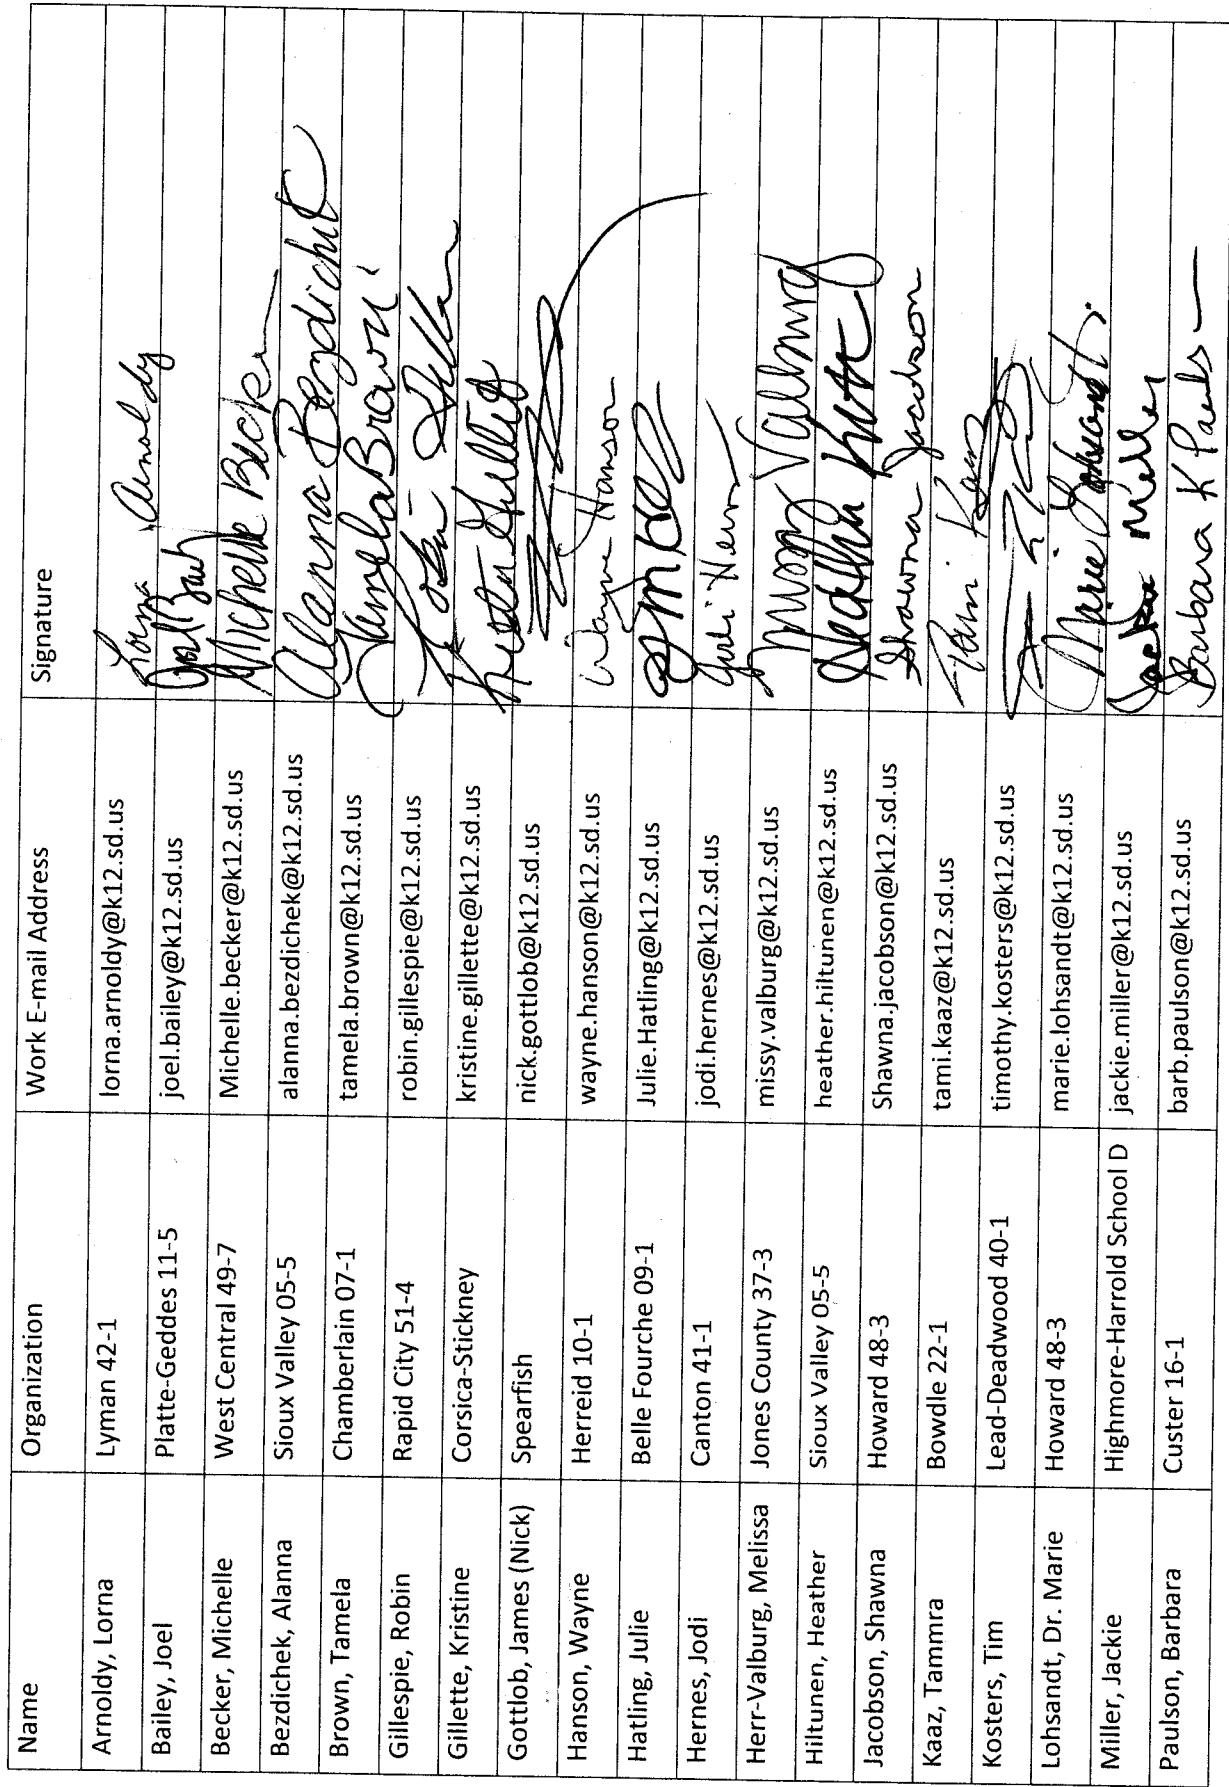 Name Organization Work E-mail Address Signature
Arnoldy, Lorna Lyman 42-1 lorna.arnoldy@k12.sd.us Lorna Arnoldy
Bailey, Joel Platte-Geddes 11-5 joel.bailey@k12.sd.us Joel
Becker, Michelle West Central 49-7 Michelle.becker@k12.sd.us Michelle Becker
Bezdichek, Alanna Sioux Valley 05-5 alanna.bezdichek@k12.sd.us Alanna Bezdichek
Brown, Tamela Chamberlain 07-1 tamela.brown@k12.sd.us Tamela Brown
Gillespie, Robin Rapid City 51-4 robin.gillespie@k12.sd.us Robin
Gillette, Kristine Corsica-Stickney kristine.gillette@k12.sd.us
Gottlob, James (Nick) Spearfish nick.gottlob@k12.sd.us
Hanson, Wayne Herreid 10-1 wayne.hanson@k12.sd.us Wayne Hanson
Hatling, Julie Belle Fourche 09-1 Julie.Hatling@k12.sd.us
Hernes, Jodi Canton 41-1 jodi.hernes@k12.sd.us
Herr-Valburg, Melissa Jones County 37-3 missy.valburg@k12.sd.us Valburg
Hiltunen, Heather Sioux Valley 05-5 heather.hiltunen@k12.sd.us Heather
Jacobson, Shawna Howard 48-3 Shawna.jacobson@k12.sd.us Shawna Jacobson
Kaaz, Tammra Bowdle 22-1 tami.kaaz@k12.sd.us Tami Kaaz
Kosters, Tim Lead-Deadwood 40-1 timothy.kosters@k12.sd.us
Lohsandt, Dr. Marie Howard 48-3 marie.lohsandt@k12.sd.us Marie Lohsandt
Miller, Jackie Highmore-Harrold School D jackie.miller@k12.sd.us Jackie Miller
Paulson, Barbara Custer 16-1 barb.paulson@k12.sd.us Barbara K